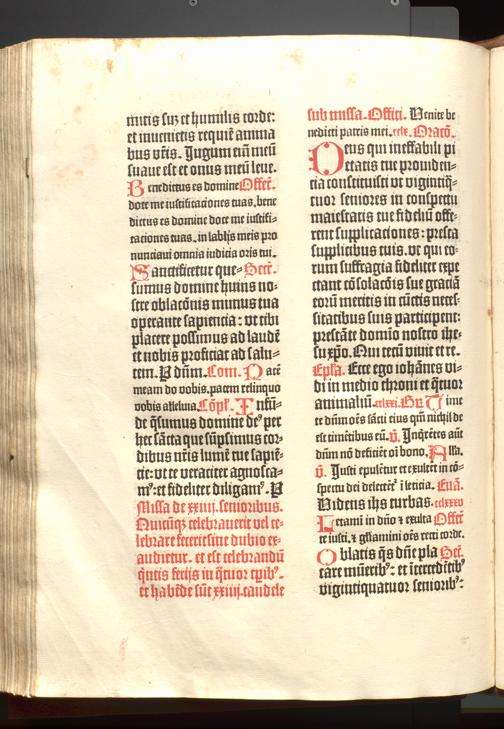 mitis suz et humilis corde:
et inuenietis requiē anima
bus vr̄is. Iugum eni meū
suaue est et onus meū leue.
Benedictus es domine Offer̄.
doce me iustificaciones tuas, bene
dictus es domine doce me iustifi-
caciones tuas. in labijs meis pro
nunciaui omnia iudicia oris tui.
Sanctificetur que- Secr̄.
sumus domine huius no-
stre oblacōnis munus tua
operante sapiencia: vt tibi
placere possimus ad laudē
et nobis proficiat ad salu-
tem. P dūm. Com. Pacē
meam do vobis. pacem relinquo
vobis alleluia. Cōpł. Infū-
de q̄sumus domine de⁹ per
hec sācta que sūpsimus cor-
dibus nr̄is lumē tue sapiē-
cie: vt te veraciter agnosca-
m⁹: et fideliter diligam⁹. P
Missa de xxiiij. senioribus.
Quicūq; celebrauerit vel ce-
lebrare fecerit sine dubio ex-
audietur. et est celebrandū
q̄ntis ferijs in q̄tuor tp̄ib⁹.
et habēde sūt xxiiij. candele
sub missa. Offici. Venite be
nedicti patris mei. Oracō.
Deus qui ineffabili pi
etatis tue prouiden-
cia constituisti vt vigintiq̄-
tuor seniores in conspectu
maiestatis tue fideliū offe-
rent supplicationes: presta
supplicibus tuis. vt qui eo-
rum suffragia fideliter expe
ctant cōsolacōis sue graciā
eorū meritis in cūctis neces-
sitatibus suis participent:
prestāte domīo nostro ihe-
su xp̄o. Qui tecū viuit et re.
Epl̄a. Ecce ego iohānes vi-
di in medio throni et q̄tuor
animaliū. Gr̄ Time
te dūm oēs sācti eius qm̄ nichil de
est timētibus eū. v̄. Inq̄rētes aūt
dūm nō deficiēt oī bono. Alla.
v̄. Iusti epulētur et exultēt in cō-
spectu dei delectēt̄ i leticia. Euā.
Videns ihs turbas.
Letami in dn̄o ⁊ exulta Offer̄
te iusti, ⁊ gl̄iamini oēs recti corde.
Oblatis q̄s dn̄e pla Secr̄.
care mūerib⁹: et ītercedētib⁹
vigintiquatuor seniorib⁹: